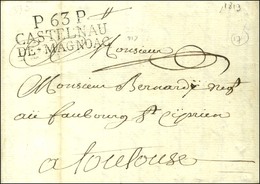 1813
P 63 P
CASTELNAU
DE-MAGNOAC
Monsieur
Monsieur Bernardy negt
au faubourg St Cyprien
a toulouse